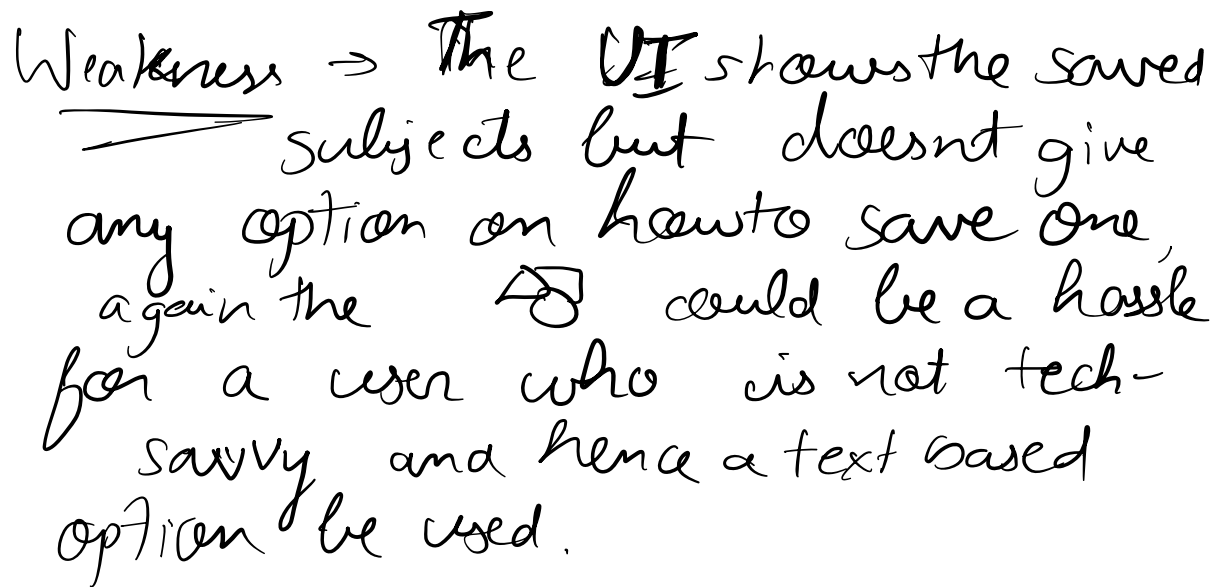 Weakness → The UI shows the saved
subjects but doesnt give
any option on how to save one,
again the could be a hassle
for a user who is not tech-
savvy and hence a text based
option be used.